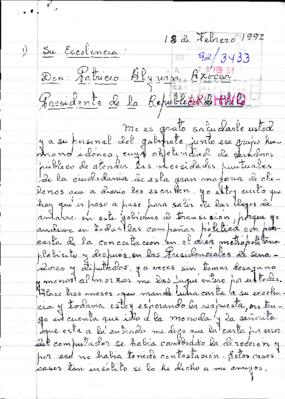 18 de Febrero 1992
1)
92/3433
Su Excelencia:
Don: Patricio Alywin Azocar
Presidente de la Republica
Me es grato saludarle usted
y a su personal del gabinete junto ese grupo hu-
mano idóneo, cuya objetividad de servidores
publico de atender las necesidades puntuales
de la ciudadania de esta gran mayoria de chi-
lenos que a diario les escriben. yo estoy cierto que
hay que ir paso a paso para salir de las leyes de
amarre en este gobierno de transición, porque yo
anduve en todas las campañas política con pan-
carta de la concertacion en el área metropolitana
plebisito y después en las Presidenciales de sena-
dores y diputados, ya veces sin tomar desayuno
y menos almorzar me las jugue entero por ustedes.
Hace tres meses que mande una carta a su excelen-
cia y todavia estoy esperando la respuesta, en
en cuenta que ido a la moneda y la señorita
que esta a la entrada me dijo que la carta por error
del computador se habia cambiado la direccion y
por eso no habia tenido contestación. Estos casos
casos tan insólito se lo he dicho a mis amigos.